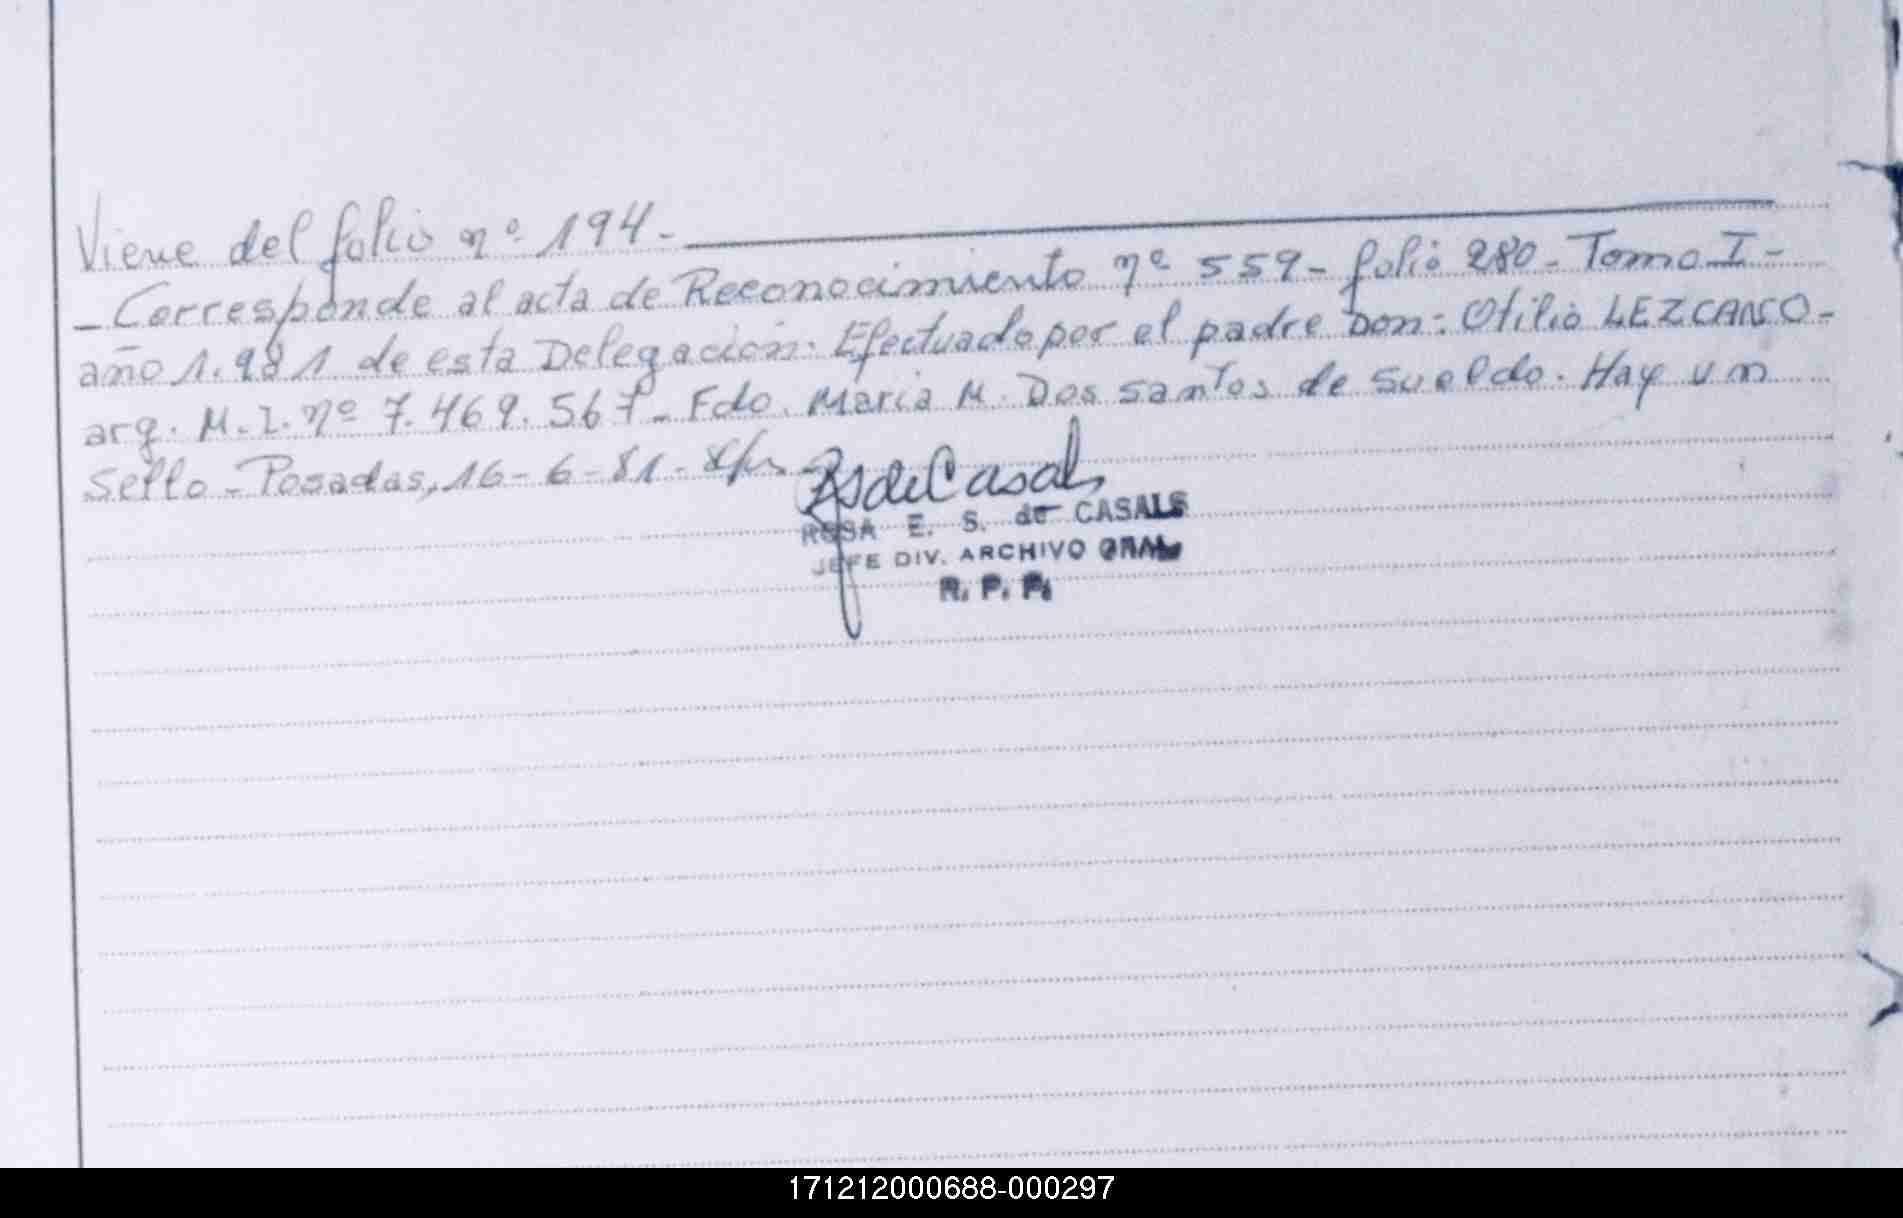 Viene del folio nº 194-
- Corresponde al acta de Reconocimiento nº 559- folio 280- Tomo I-
año 1.981 de esta Delegación. Efectuado por el padre Don: Otilio LEZCANO-
arg. M.I. nº 7.469.567- Fdo. María M. Dos santos de sueldo. Hay un
Sello- Posadas, 16-6-81-
RS de Casals
ROSA E. S. de CASALS
JEFE DIV. ARCHIVO GRAL
R. P. P.
171212000688-000297